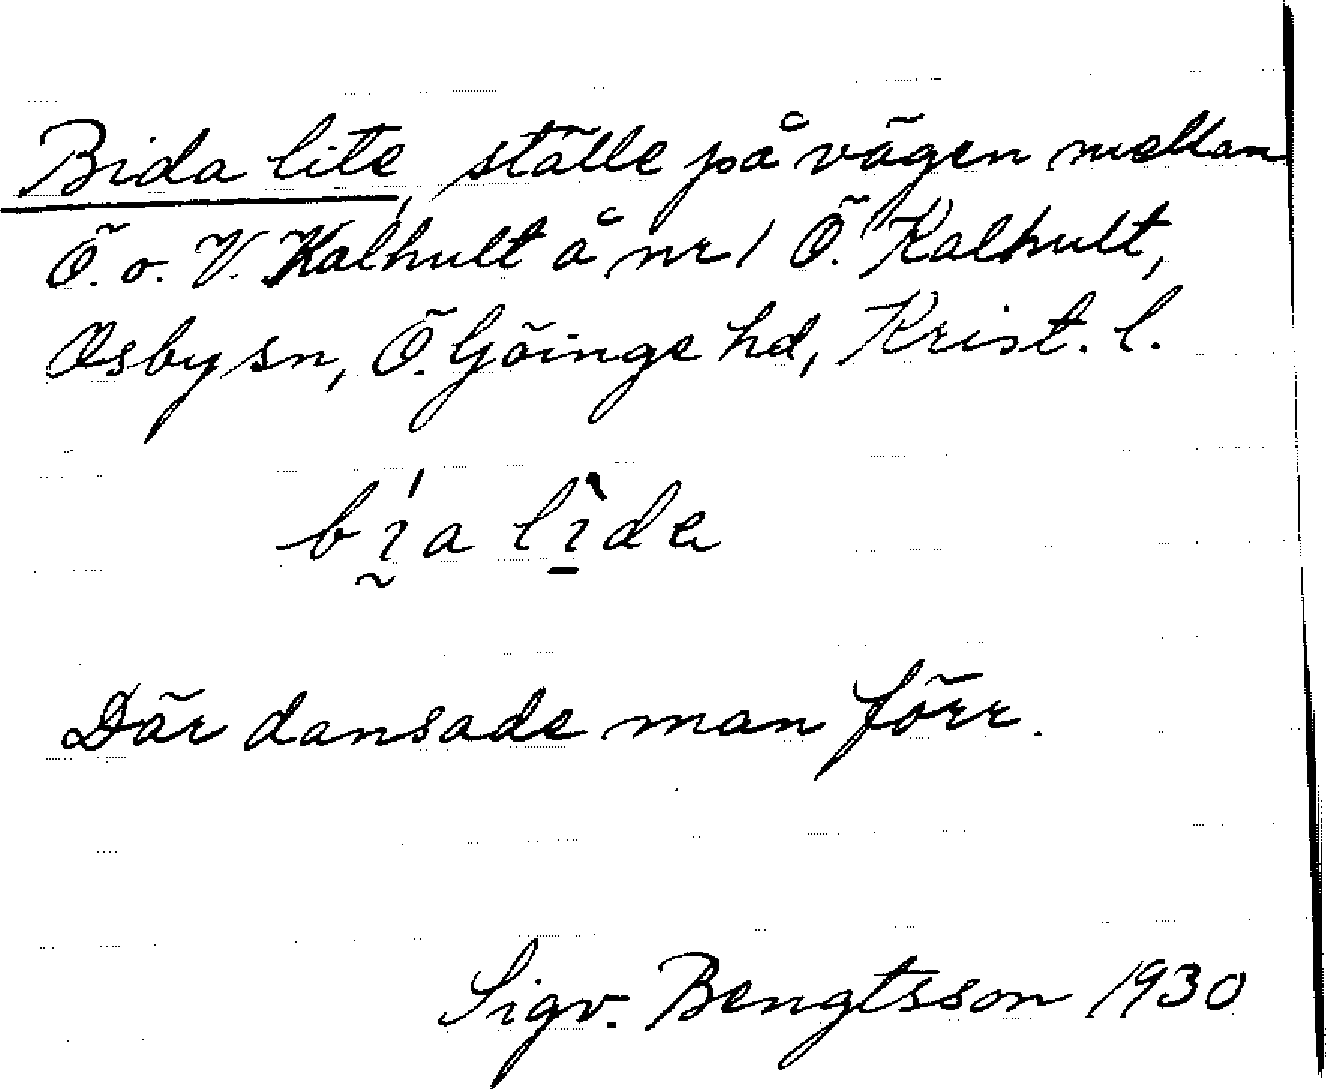 Bida lite, ställe på vägen mellan
Ö. o. V. Kalhult å nr 1 Ö. Kalhult,
Osby sn, Ö. Göinge hd, Krist. l.
bḭ́a lì̱de
Där dansade man förr.
Sigv. Bengtsson 1930